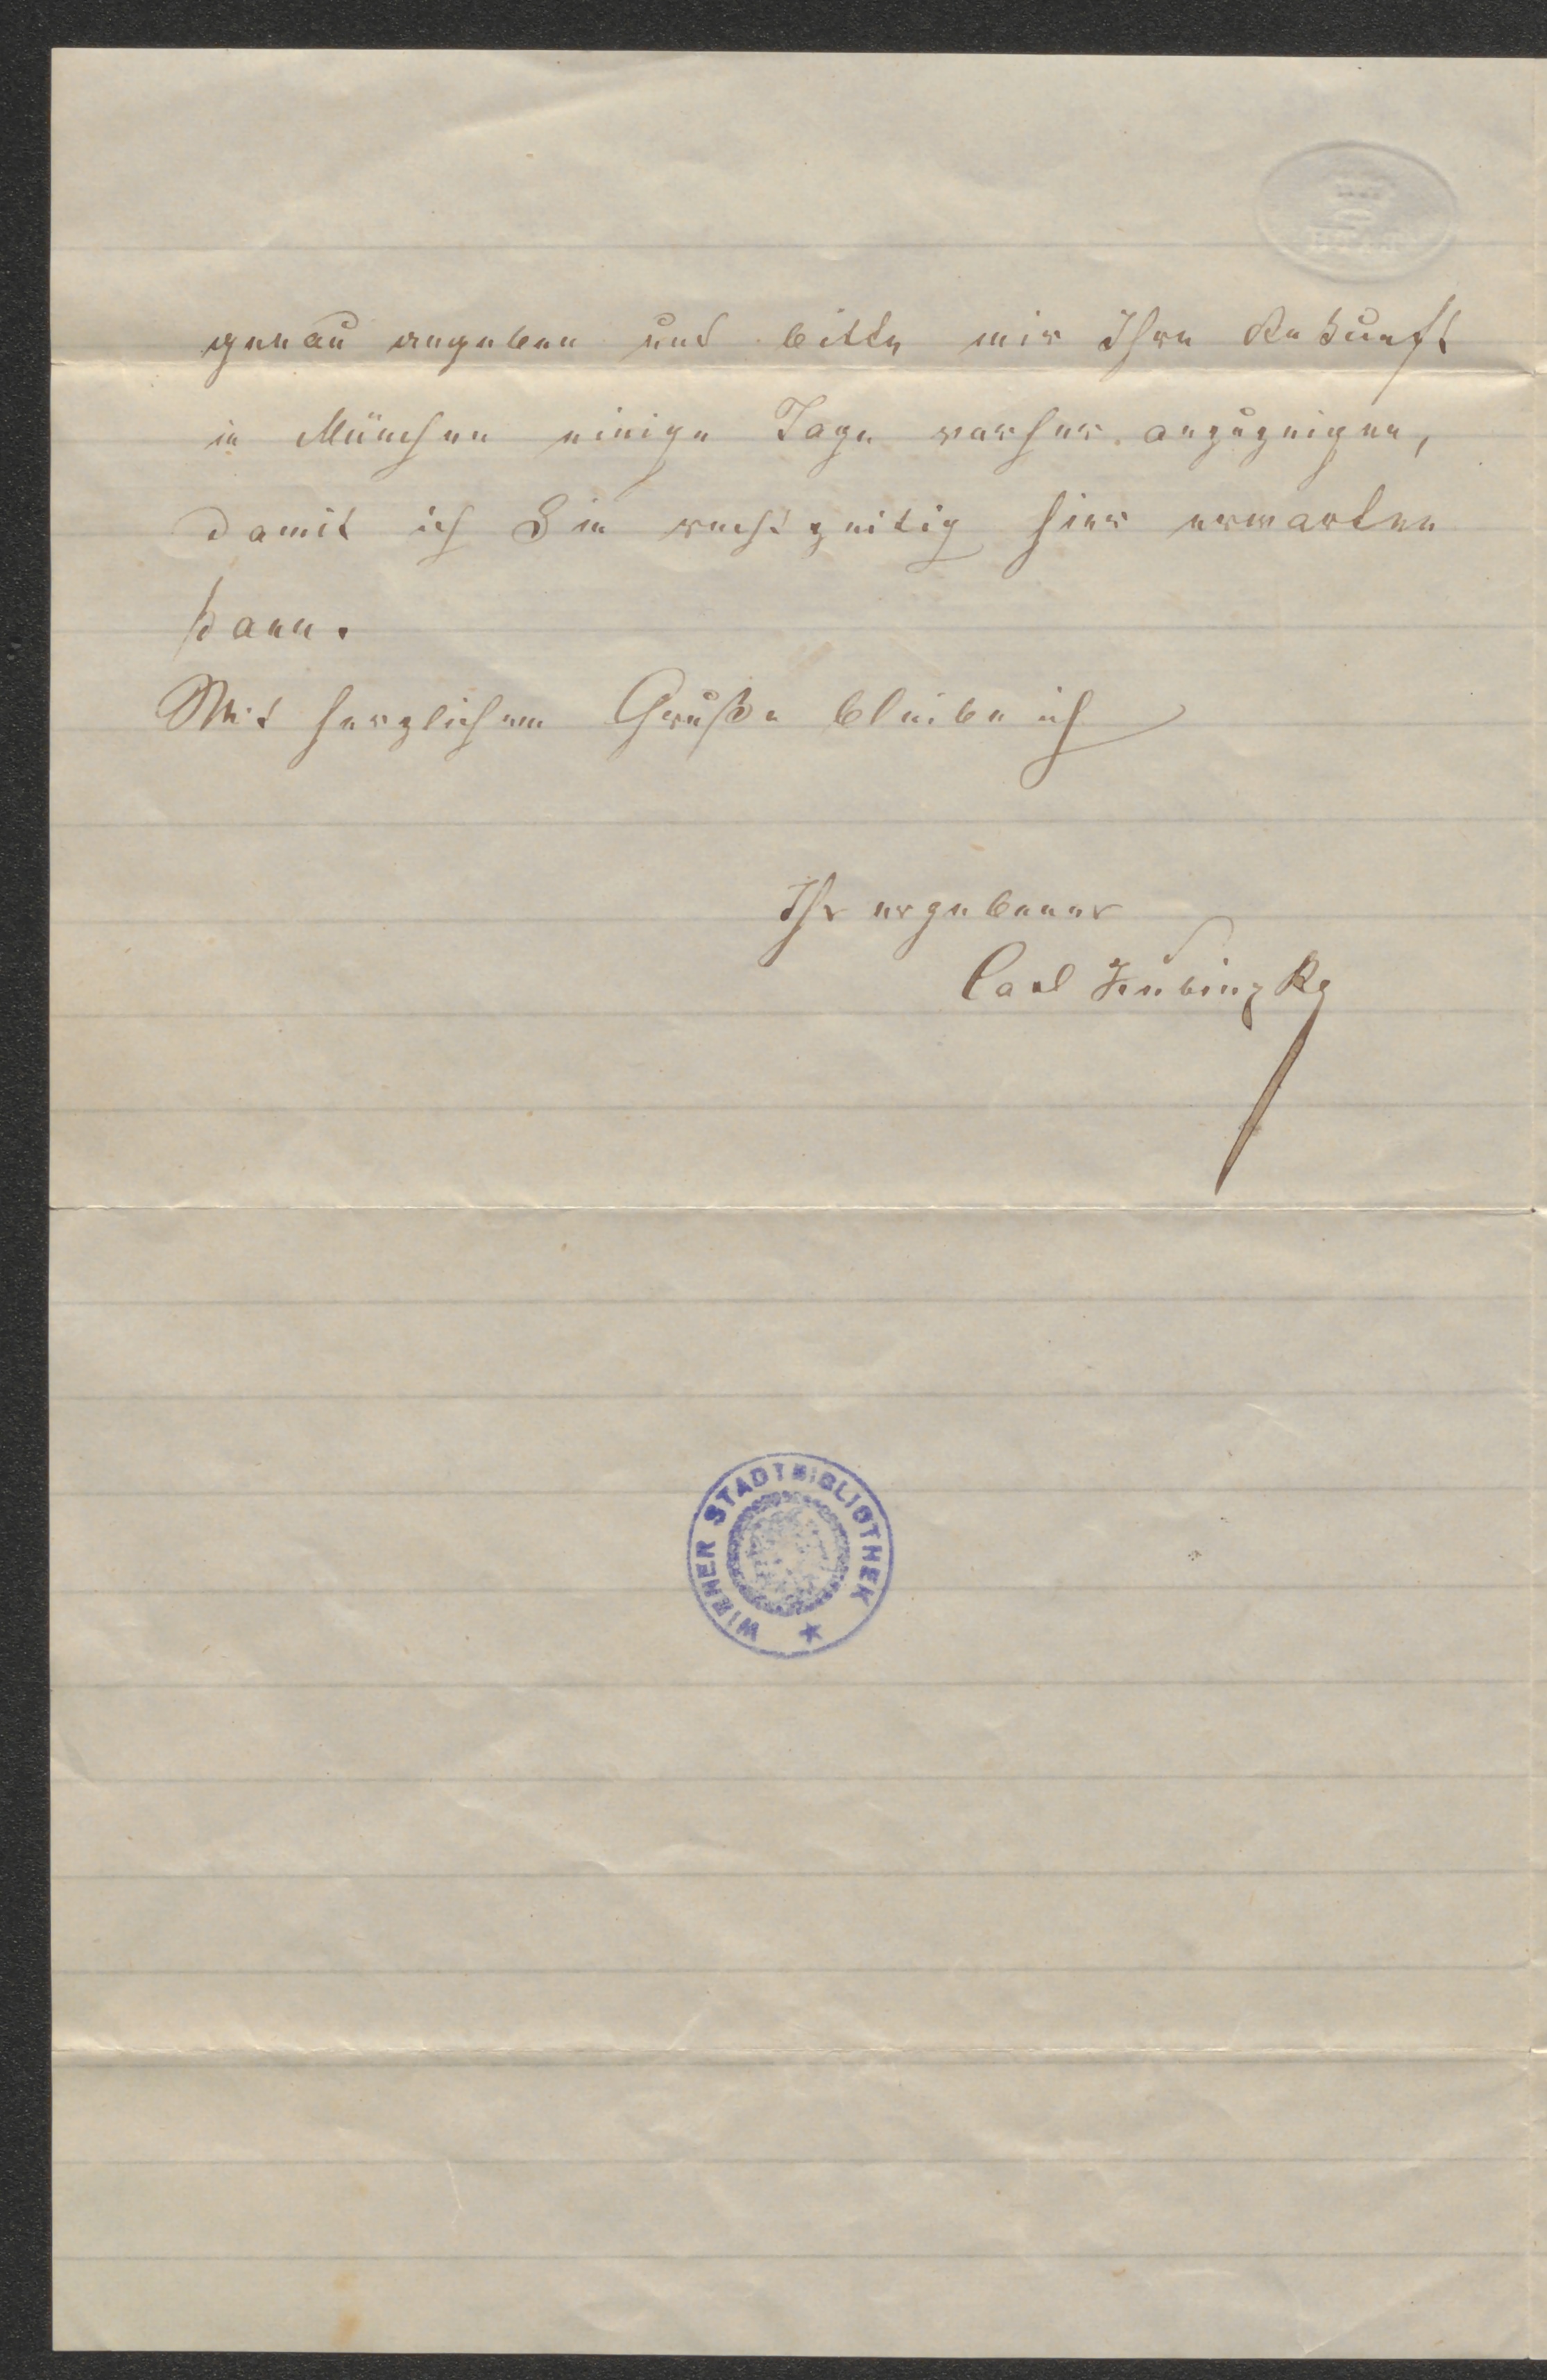 genau angeben und bitte mir Ihre Ankunft
in München einige Tage vorher anzuzeigen,
damit ich Sie rechtzeitig hier erwarten
kann.
Mit herzlichem Gruße bleibe ich
Ihr ergebener
Carl
WIENER STADTBIBLIOTHEK